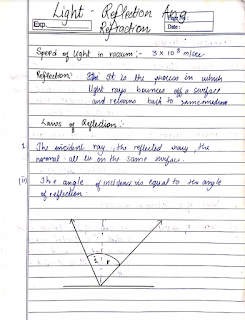 Light - Reflection And
Refraction
Exp.
Date :
Speed of light in vacuum :- 3 × 10⁸ m/sec
Reflection:- It is the process in which
light rays bounces off a surface
and returns back to same medium
Laws of Reflection :-
The incident ray, the reflected ray, the
normal all lie on the same surface.
(ii) The angle of incidence is equal to the angle
of reflection.
i r